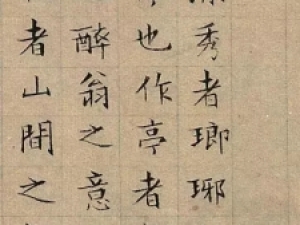 秀者瑯琊
也作亭者
醉翁之意
者山間之